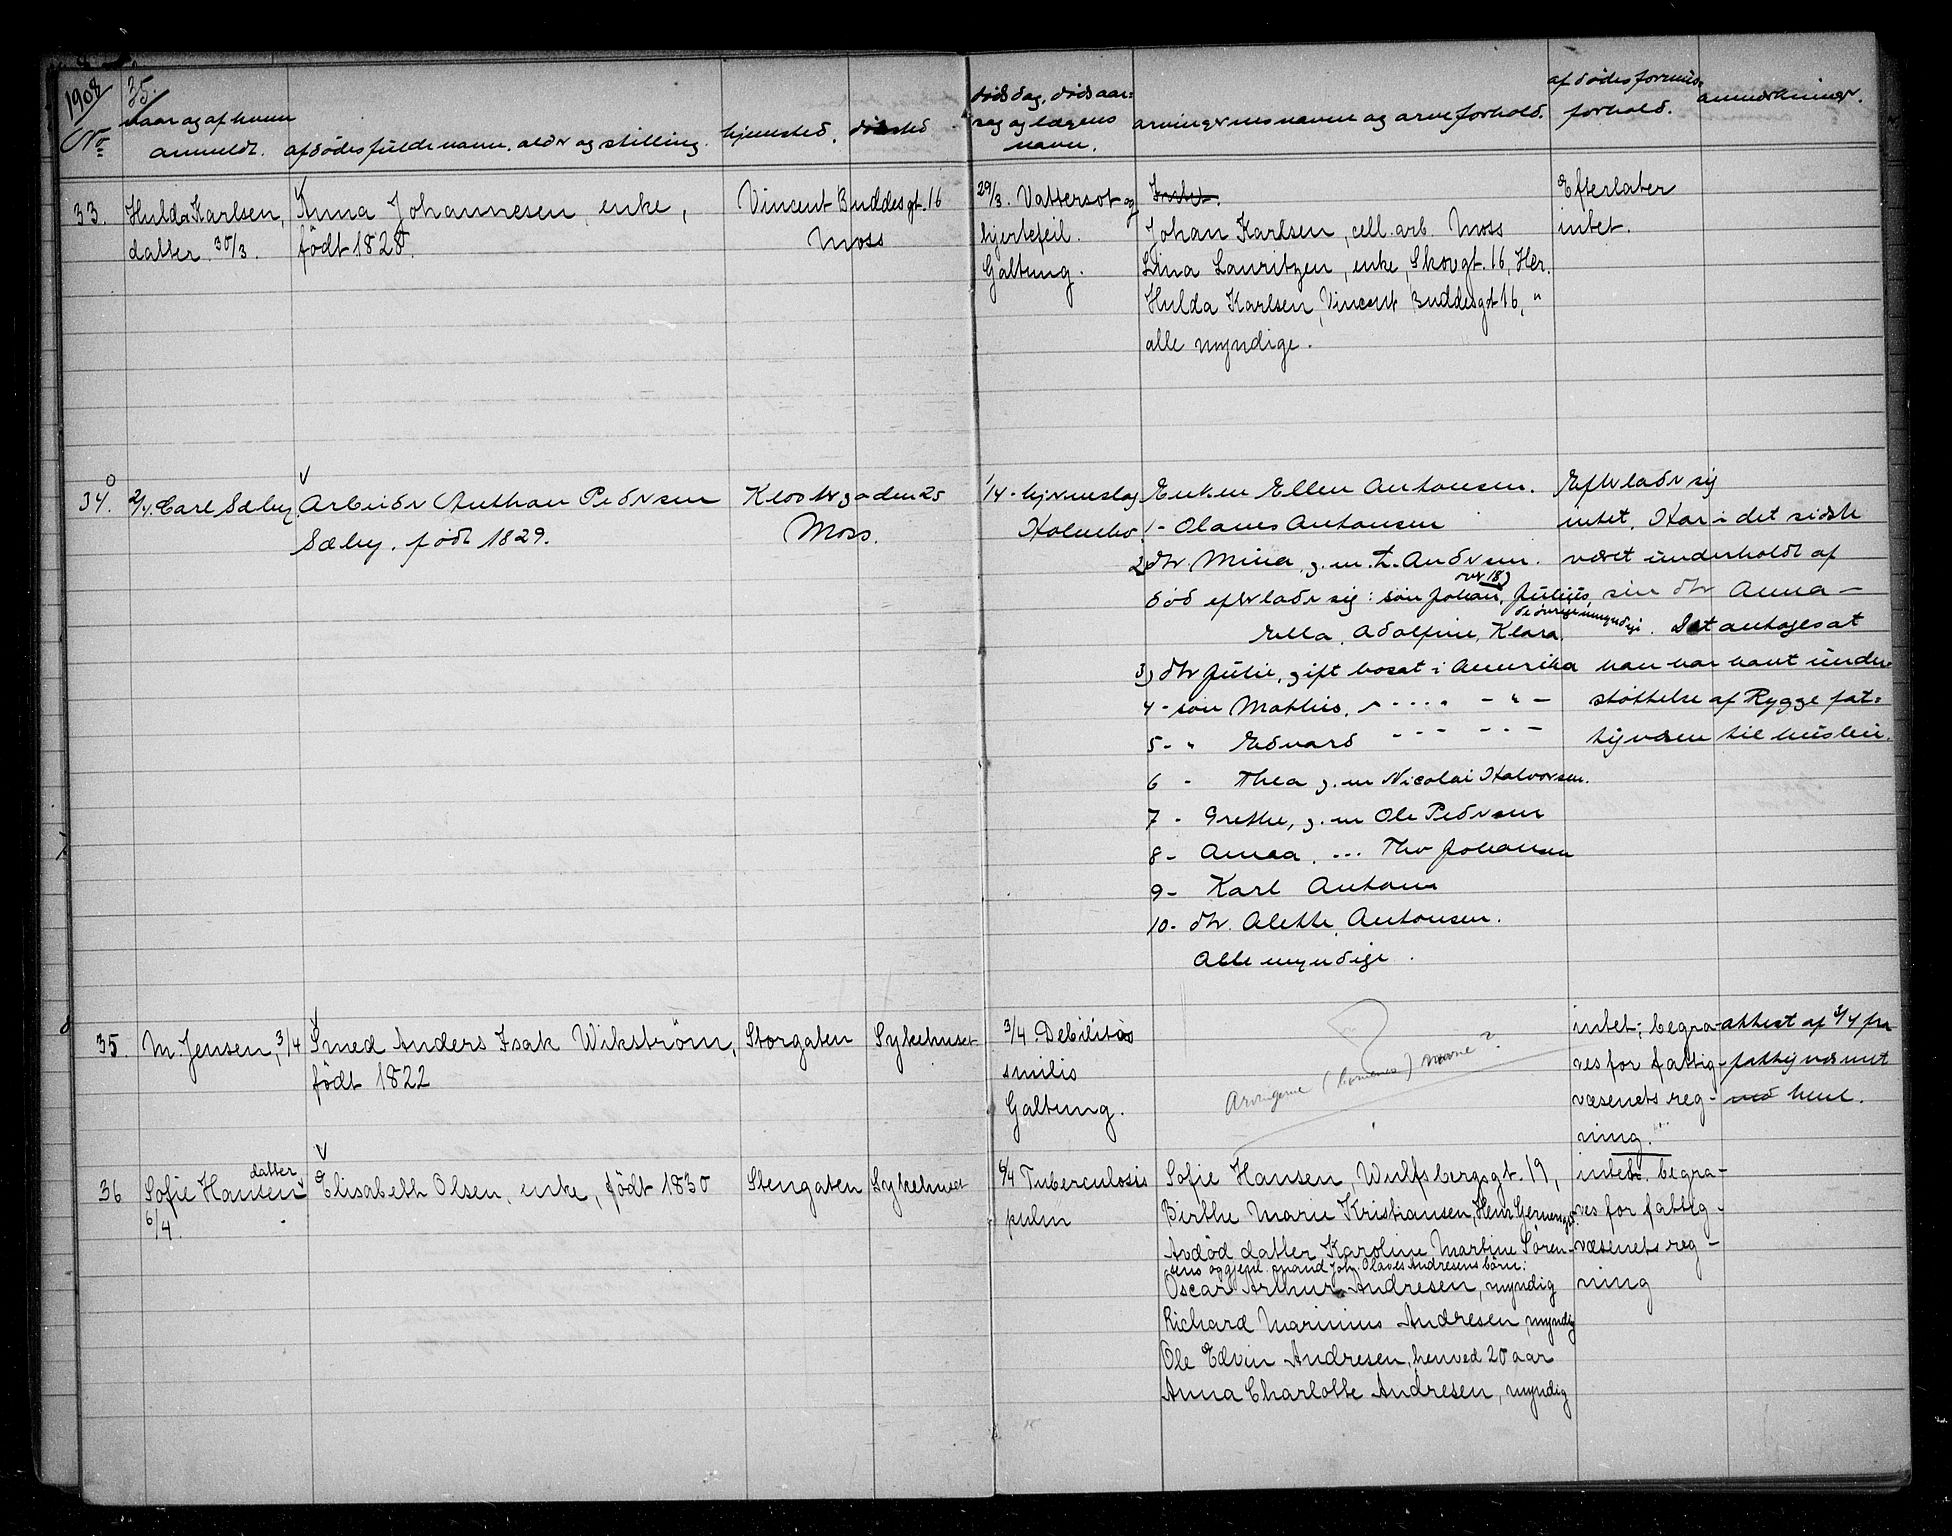 1908 35.
No
naar og af hvem
anmeldt.
afdødes fulde navn, alder og stilling.
hjemsted.
dødsted
dødsdag, dødsaar-
sag og lægens
navn.
arvingernes navne og arveforhold.
afdødes formues-
forhold.
anmerkninger.
33. Hulda Karlsen,
datter 30/3.
Anna Johannesen, enke,
født 1828.
Vincent Buddesgt. 16
Moss
29/3. Vattersot og
hjertefeil.
Galtung.
Intet.
Johan Karlsen, cell. arb. Moss
Lina Lauritzen, enke, Skovgt. 16, Her.
Hulda Karlsen, Vincent Buddesgt 16, "
alle myndige.
Efterlater
intet.
34. 2/4. Carl Sæby.
Arbeider Anthon Pedersen
Sæby. født 1829.
Klostergaden 25
Moss.
1/4. hjerneslag
Holmbo.
Enken Ellen Antonsen.
1 - Olaves Antonsen
2) dtr Mina, g. m. L. Andersen.
over 18
død efterlader sig: søn Johan, Julius
de øvrige umyndige.
Ella, Adolfine, Klara.
3) dtr Julie, gift bosat i Amerika
4 - søn Mathis, - " -
5 - " Edvard - " -
6 - Thea g. m Nicolai Halvorsen.
7 - Grethe, g. m Ole Pedersen
8 - Anna, ... Thv Johansen
9 - Karl Antons
10 - dtr. Alette Antonsen.
Alle myndige.
Efterlader sig
intet. Har i det sidste
været underholdt af
sin dtr Anna -
Det antages at
han har havt under-
støttelse af Rygge fat-
tigvæsen til husleie.
35. M. Jensen, 3/4
Smed Anders Isak Wikström,
født 1822
Storgaten
Sykehuset
3/4. Debilitas
senilis
Galtung.
Arvingerne navne?
intet; begra-
ves for fattig-
væsenets reg-
ning."
attest af 3/4 fra
fattigvæsenet
med hent.
36 datter
Sofie Hansen
6/4.
Elisabeth Olsen, enke, født 1830
Stengaten
Sykehuset
6/4 Tuberculosis
pulm
Sofie Hansen, Wulfsbergsgt. 19,
Birthe Marie Kristiansen, Henr Gernersgt.
Avdød datter Karoline Martine Søren-
sens og gjenl. mand Joh. Olaves Andresens børn:
Oscar Arthur Andresen, myndig
Richard Marinius Andresen, myndig
Ole Edvin Andresen, henved 20 aar
Anna Charlotte Andresen, myndig
intet. begra-
ves for fattig-
væsenets reg-
ning